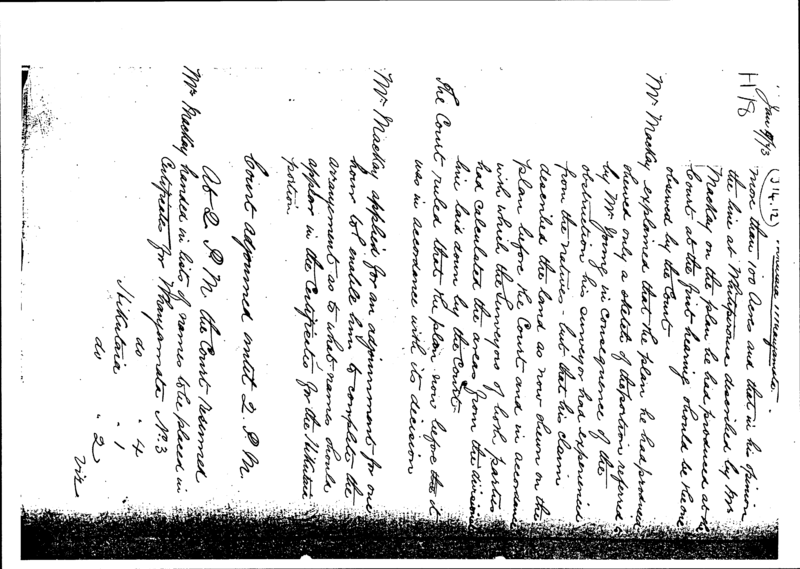 Jan 9/73 (J 14.12)
H 18
more than 100 Acres and that in his opinion
the line at described by Mr
Mackay on the plan he had produced at the
Court at the first hearing should be the one
observed by the Court
Mr Mackay explained that the plan he had produced
showed only a sketch of the portion referred to
by Mr Young in consequence of the
obstruction his surveyor had experienced
from the natives - but that his claim
described the land as now shewn on the
plan before the Court and in accordance
with which the Surveyors of both parties
had calculated the areas from the division
line laid down by the Court
The Court ruled that the plan now before it
was in accordance with its decision
Mr Mackay applied for an adjournment for one
hour to enable him to complete the
arrangement as to what names should
appear in the Certificates for the Hikutaia
portion
Court adjourned until 2. P.M.
At 2 P.M. the Court resumed
Mr Mackay handed in lists of names to be placed in
Certificates for Whangamata No. 3
do " 4
Hikutaia " 1
do " 2 viz